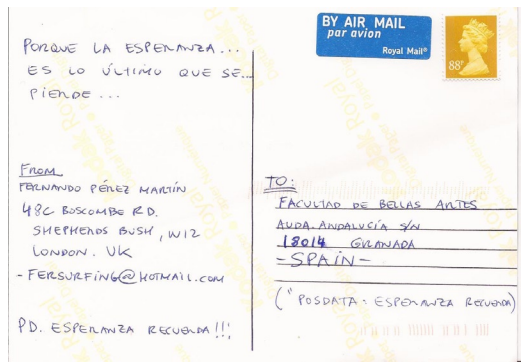 PORQUE LA ESPERANZA...
ES LO ÚLTIMO QUE SE...
PIERDE...
FROM
FERNANDO PÉREZ MARTÍN
48C BOSCOMBE RD.
SHEPHERDS BUSH, W12
LONDON. UK
- FERSURFING@HOTMAIL.COM
PD. ESPERANZA RECUERDA!!!
BY AIR MAIL
par avion
Royal Mail®
88P
TO:
FACULTAD DE BELLAS ARTES
AVDA. ANDALUCÍA S/N
18014 GRANADA
- SPAIN -
(" POSDATA: ESPERANZA RECUERDA)